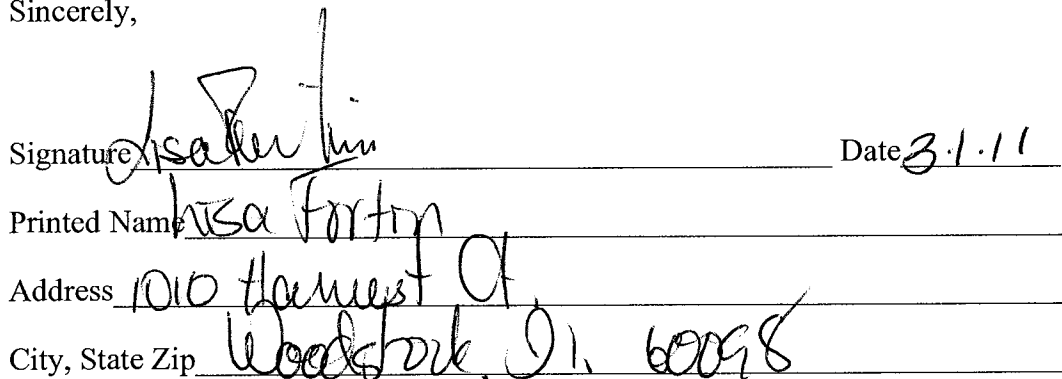 Sincerely,
Signature Lisa Date 3.1.11
Printed Name Lisa Fortin
Address 1010 Harvest Ct.
City, State Zip Woodstock, Il. 60098